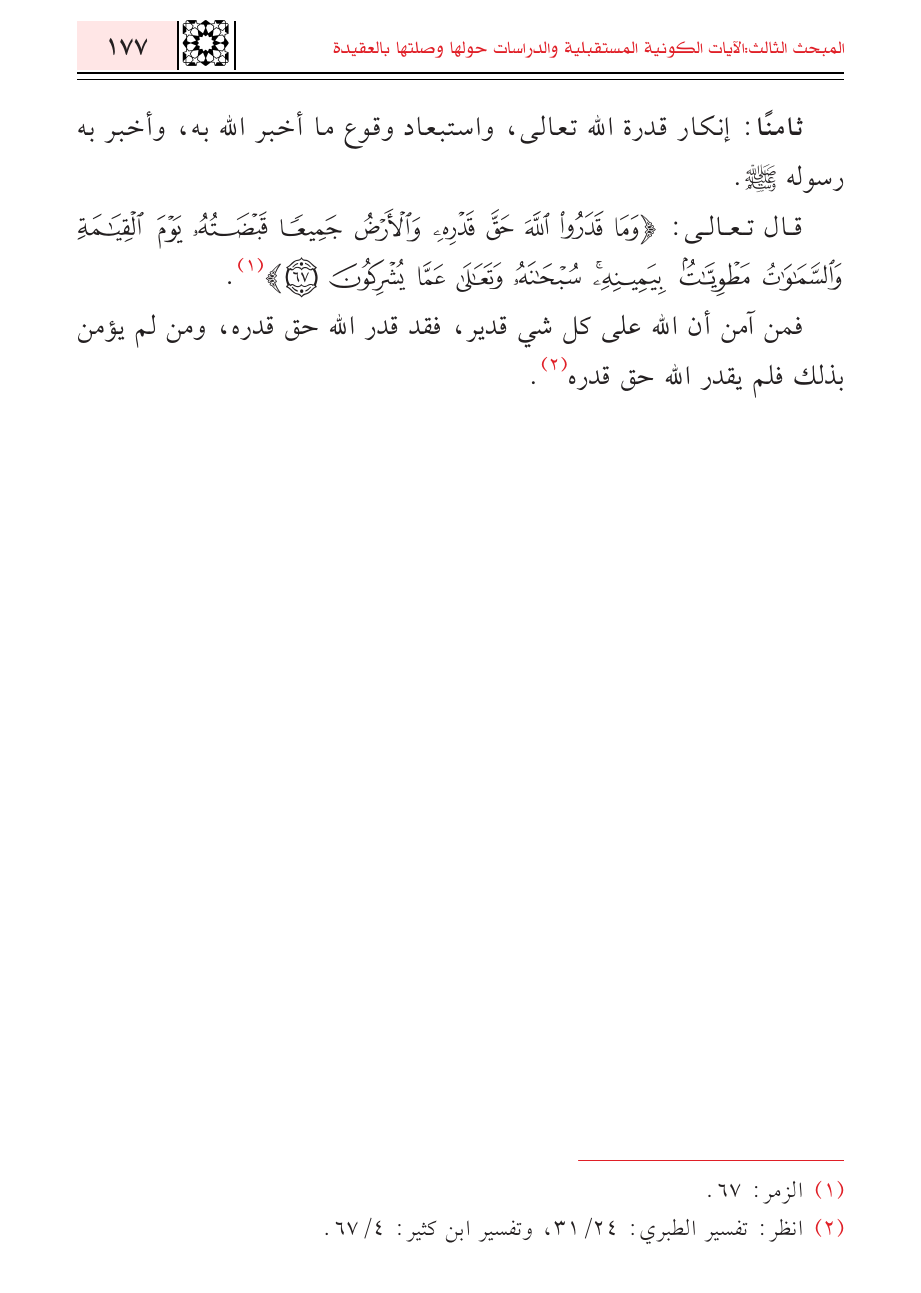 المبحث الثالث:الآيات الكونية المستقبلية والدراسات حولها وصلتها بالعقيدة
١٧٧
ثامنًا: إنكار قدرة الله تعالى، واستبعاد وقوع ما أخبر الله به، وأخبر به
رسوله ﷺ.
قال تعالى: ﴿وَمَا قَدَرُوا۟ ٱللَّهَ حَقَّ قَدْرِهِۦ وَٱلْأَرْضُ جَمِيعًا قَبْضَتُهُۥ يَوْمَ ٱلْقِيَـٰمَةِ
وَٱلسَّمَـٰوَٰتُ مَطْوِيَّـٰتٌۢ بِيَمِينِهِۦۚ سُبْحَـٰنَهُۥ وَتَعَـٰلَىٰ عَمَّا يُشْرِكُونَ ۝٦٧﴾(١).
فمن آمن أن الله على كل شي قدير، فقد قدر الله حق قدره، ومن لم يؤمن
بذلك فلم يقدر الله حق قدره(٢).
(١) الزمر: ٦٧.
(٢) انظر: تفسير الطبري: ٣١/٢٤، وتفسير ابن كثير: ٦٧/٤.